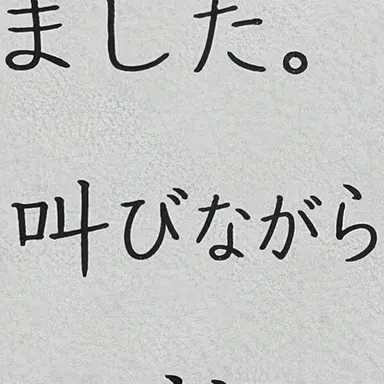 ました。
叫びながら